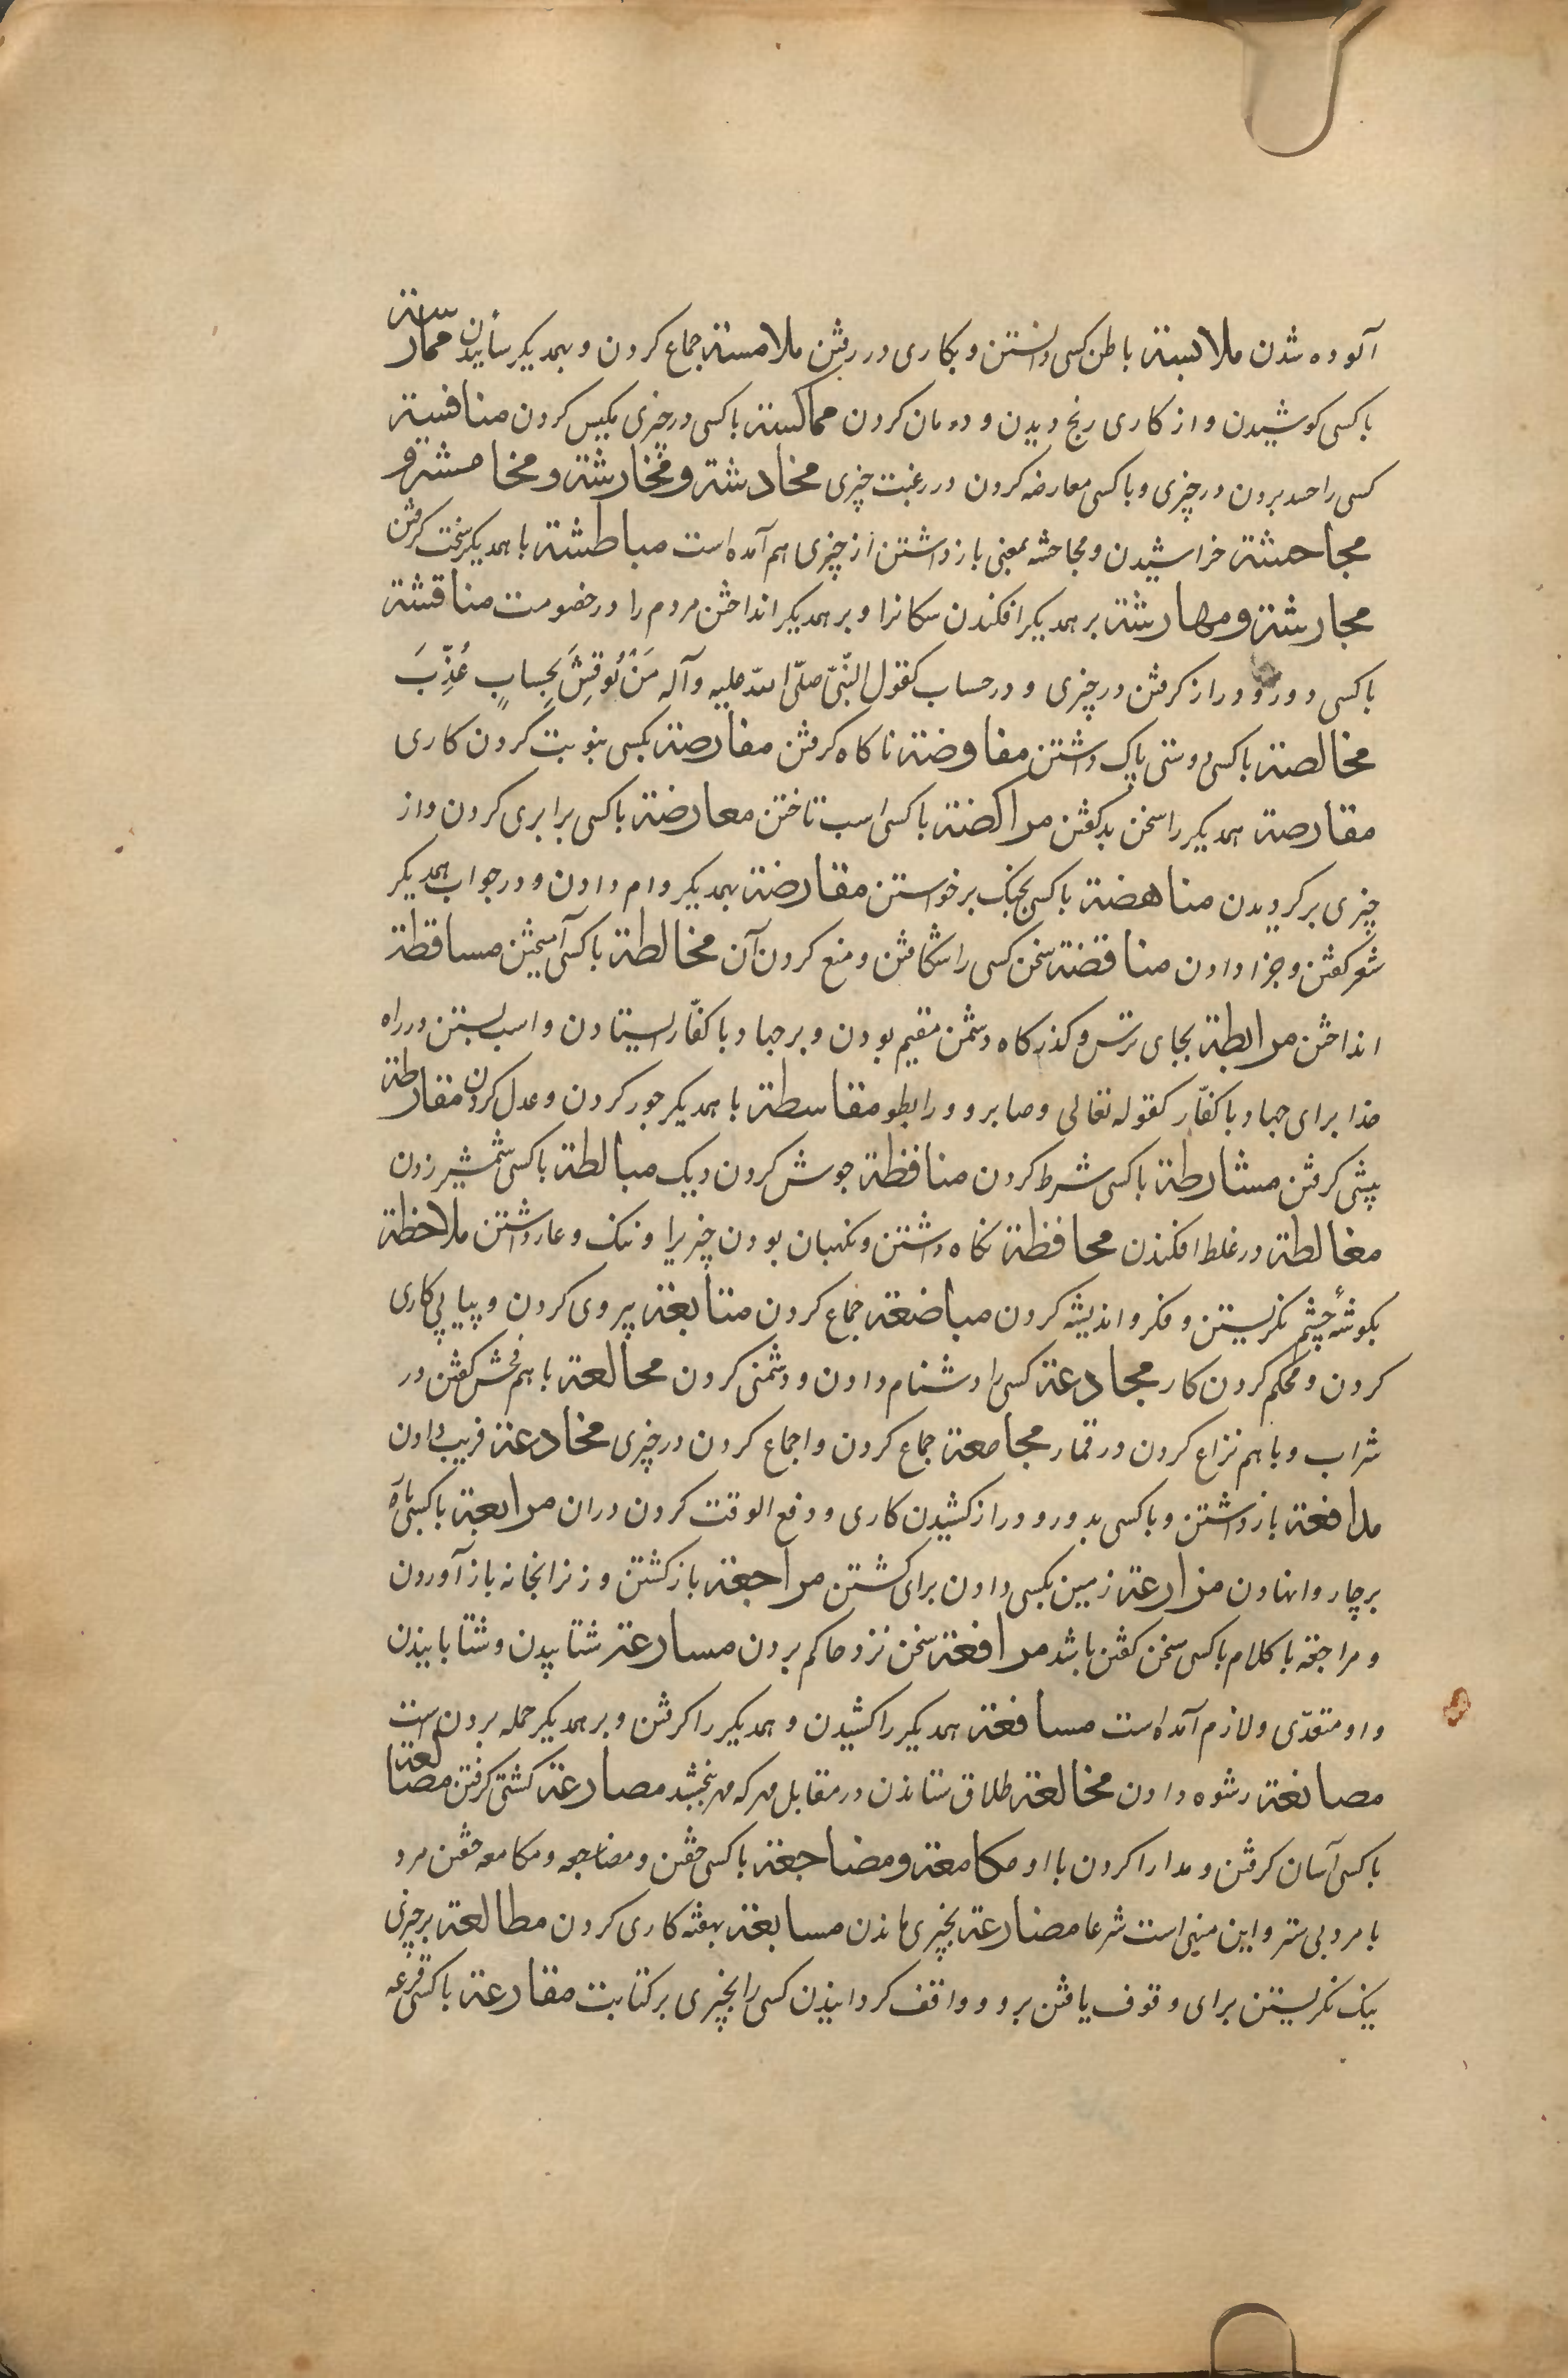 آلوده شدن ملابسة باطن کسی دانستن و بکاری در رفتن ملامسة جماع کردن و بهمدیکر ساییدن ممارسة
با کسی کوشیدن و از کاری رنج دیدن و درمان کردن مماکسة با کسی در چیزی مکیس کردن منافسة
کسی را حسد بردن در چیزی و با کسی معارضه کردن در رغبت چیزی مخادشة و مخارشة و مخامشة و
مجاحشة خراشیدن و مجاحشه بمعنی باز داشتن از چیزی هم آمده است مباطشة با همدیکر سخت کرفتن
مجارشة و مهارشة بر همدیکر افکندن سکانرا و بر همدیکر انداختن مردم را در خصومت مناقشة
با کسی دور و دراز کرفتن در چیزی و در حساب کقول النّبیّ صلّی اللّه علیه وآله مَنْ نُوقِشَ بِحِسابٍ عُذِّبَ
مخالصة با کسی دوستی پاک داشتن مفاوضة ناکاه کرفتن مفارصة بکسی بنوبت کردن کاری
مقارصة همدیکر را سخن بد کفتن مراکضة با کسی اسب تاختن معارضة با کسی برابری کردن و از
چیزی بر کردیدن مناهضة با کسی بجنک برخواستن مقارضة بهمدیکر وام دادن و در جواب همدیکر
شعر کفتن و جزا دادن مناقضة سخن کسی را شکافتن و منع کردن آن مخالطة با کسی آمیختن مساقطة
انداختن مرابطة بجای ترس و کذرکاه دشمن مقیم بودن و بر جهاد با کفّار ایستادن و اسب بستن در راه
خدا برای جهاد با کفّار کقوله تعالی وصابروا ورابطوا مقاسطة با همدیکر جور کردن و عدل کردن مفارطة
پیشی کرفتن مشارطة با کسی شرط کردن منافظة جوش کردن دیک مبالطة با کسی شمشیر زدن
مغالطة در غلط افکندن محافظة نکاه داشتن و نکهبان بودن چیزیرا و ننک و عار داشتن ملاحظة
بکوشهٔ چشم نکریستن و فکر و اندیشه کردن مباضعة جماع کردن متابعة پیروی کردن و پیاپی کاری
کردن و محکم کردن کار مجادعة کسی را دشنام دادن و دشمنی کردن مجالعة با هم فحش کفتن در
شراب و با هم نزاع کردن در قمار مجامعة جماع کردن و اجماع کردن در چیزی مخادعة فریب دادن
مدافعة باز داشتن و با کسی بدور و دراز کشیدن کاری و دفع الوقت کردن دران مرابعة با کسی
بر چاروا نهادن مزارعة زمین بکسی دادن برای کشتن مراجعة باز کشتن و زنرا بخانه باز آوردن
و مراجعة با کلام با کسی سخن کفتن باشد مرافعة سخن نزد حاکم بردن مسارعة شتابیدن و شتابانیدن
و او متعدّی و لازم آمده است مسافعة همدیکر را کشیدن و همدیکر را کرفتن و بر همدیکر حمله بردن است
مصانعة رشوه دادن مخالعة طلاق ستاندن در مقابل مهر که مهر بخشد مصارعة کشتی کرفتن مصانعة
با کسی آسان کرفتن و مدارا کردن با او مکامعة و مضاجعة با کسی خفتن و مضاجعه و مکامعه خفتن مرد
با مرد بی ستر و این منهی است شرعا مضارعة بچیزی ماندن مسابعة بهفته کاری کردن مطالعة بر چیزی
نیک نکریستن برای وقوف یافتن برو و واقف کردانیدن کسی را بچیزی بر کتابت مقارعة با کسی قرعه